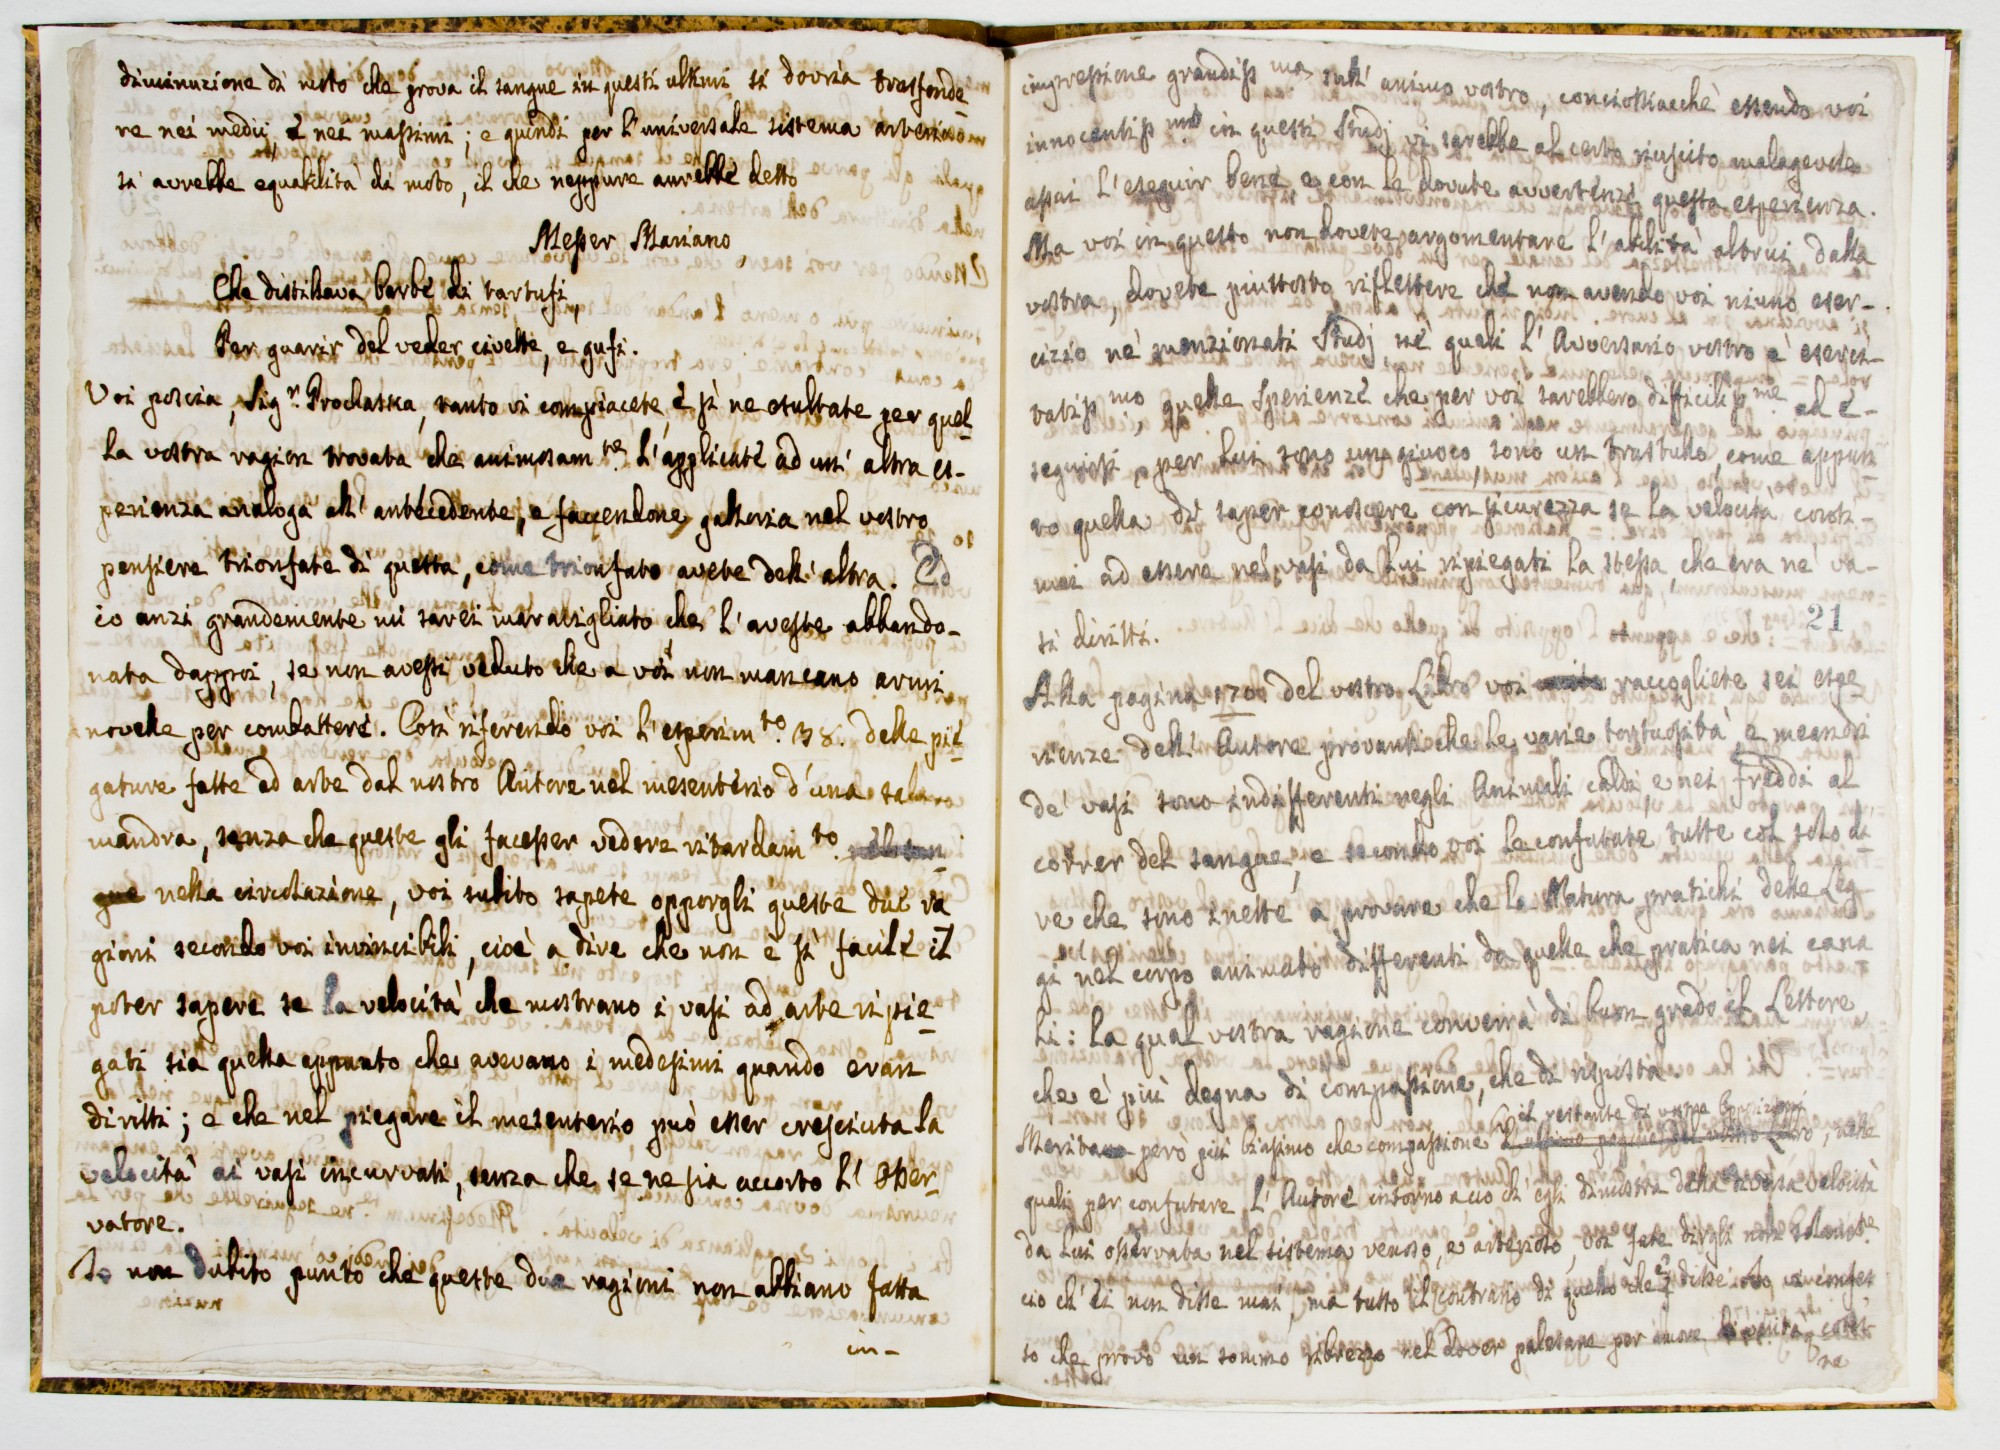 diminuzione di moto che prova il sangue in questi ultimi si dovria trasfonde
re nei medij e nei massimi; e quindi per l'universale sistema arterioso
si avrebbe equabilità di moto, il che neppure avrebbe detto
Messer Mariano
Che distillava barbe di tartufi,
Per guarir del veder civette, e gufi.
Voi poscia, Sig.r Prochaska, tanto vi compiacete, e sì ne esultate per quel
la vostra ragion trovata che animosam.te l'applicate ad un' altra es-
perienza analoga all' antecedente, e facendone galloria nel vostro
pensiere trionfate di questa, come trionfato avete dell' altra. Ed
io anzi grandemente mi sarei maravigliato che l'aveste abbando-
nata dappoi, se non avessi veduto che a voi non mancano armi
novelle per combattere. Così riferendo voi l'esperim.to 138. delle pie
gature fatte ad arte dal nostro Autore nel mesenterio d'una sala
mandra, senza che queste gli facesser vedere ritardam.to
nella circolazione, voi subito sapete opporgli queste due ra
gioni secondo voi invincibili, cioè a dire che non è sì facile il
poter sapere se la velocità che mostrano i vasi ad arte ripie
gati sia quella appunto che avevano i medesimi quando eran
diritti; e che nel piegare il mesenterio può esser cresciuta la
velocità ai vasi incurvati, senza che se ne sia accorto l' Osser-
vatore.
Io non dubito punto che queste due ragioni non abbiano fatta
in-
impressione grandiss.ma sull' animo vostro, conciossiacchè essendo voi
innocentiss.mo in questi Studj vi sarebbe al certo riuscito malagevole
assai l'eseguir bene, e con le dovute avvertenze questa esperienza.
Ma voi in questo non dovete argomentare l'abilità altrui dalla
vostra, dovete piuttosto riflettere che non avendo voi niuno eser-
cizio ne' menzionati Studj ne' quali l' Avversario vostro è eserci-
tatiss.mo, quelle Sperienze che per voi sarebbero difficiliss.me ad e-
seguirsi, per lui sono un giuoco sono un trastullo, come appun
to quella di saper conoscere con sicurezza se la velocità conti-
nui ad essere nei vasi da lui ripiegati la stessa, che era ne' va-
si diritti.
21
Alla pagina 170 del vostro Libro voi raccogliete sei espe
rienze dell' Autore provanti che le varie tortuosità, e meandri
de' vasi sono indifferenti negli Animali caldi e nei freddi al
correr del sangue, e secondo voi le confutate tutte col solo di
re che sono inette a provare che la Natura pratichi delle Leg
gi nel corpo animato differenti da quelle che pratica nei cana
li: la qual vostra ragione converrà di buon grado il Lettore
che è più degna di compassione, che di risposta.
il restante di vostre Opposizioni
Merita però più biasimo che compassione, nelle
quali per confutare l' Autore intorno a ciò ch' egli dimostra della diversa velocità
da lui osservata nel sistema venoso, e arterioso, voi fate dirgli non solam.te
ciò ch' ei non disse mai, ma tutto il contrario di quello che ei disse. Io vi confes
so che provo un sommo ribrezzo nel dover palesare per amore di verità
ne